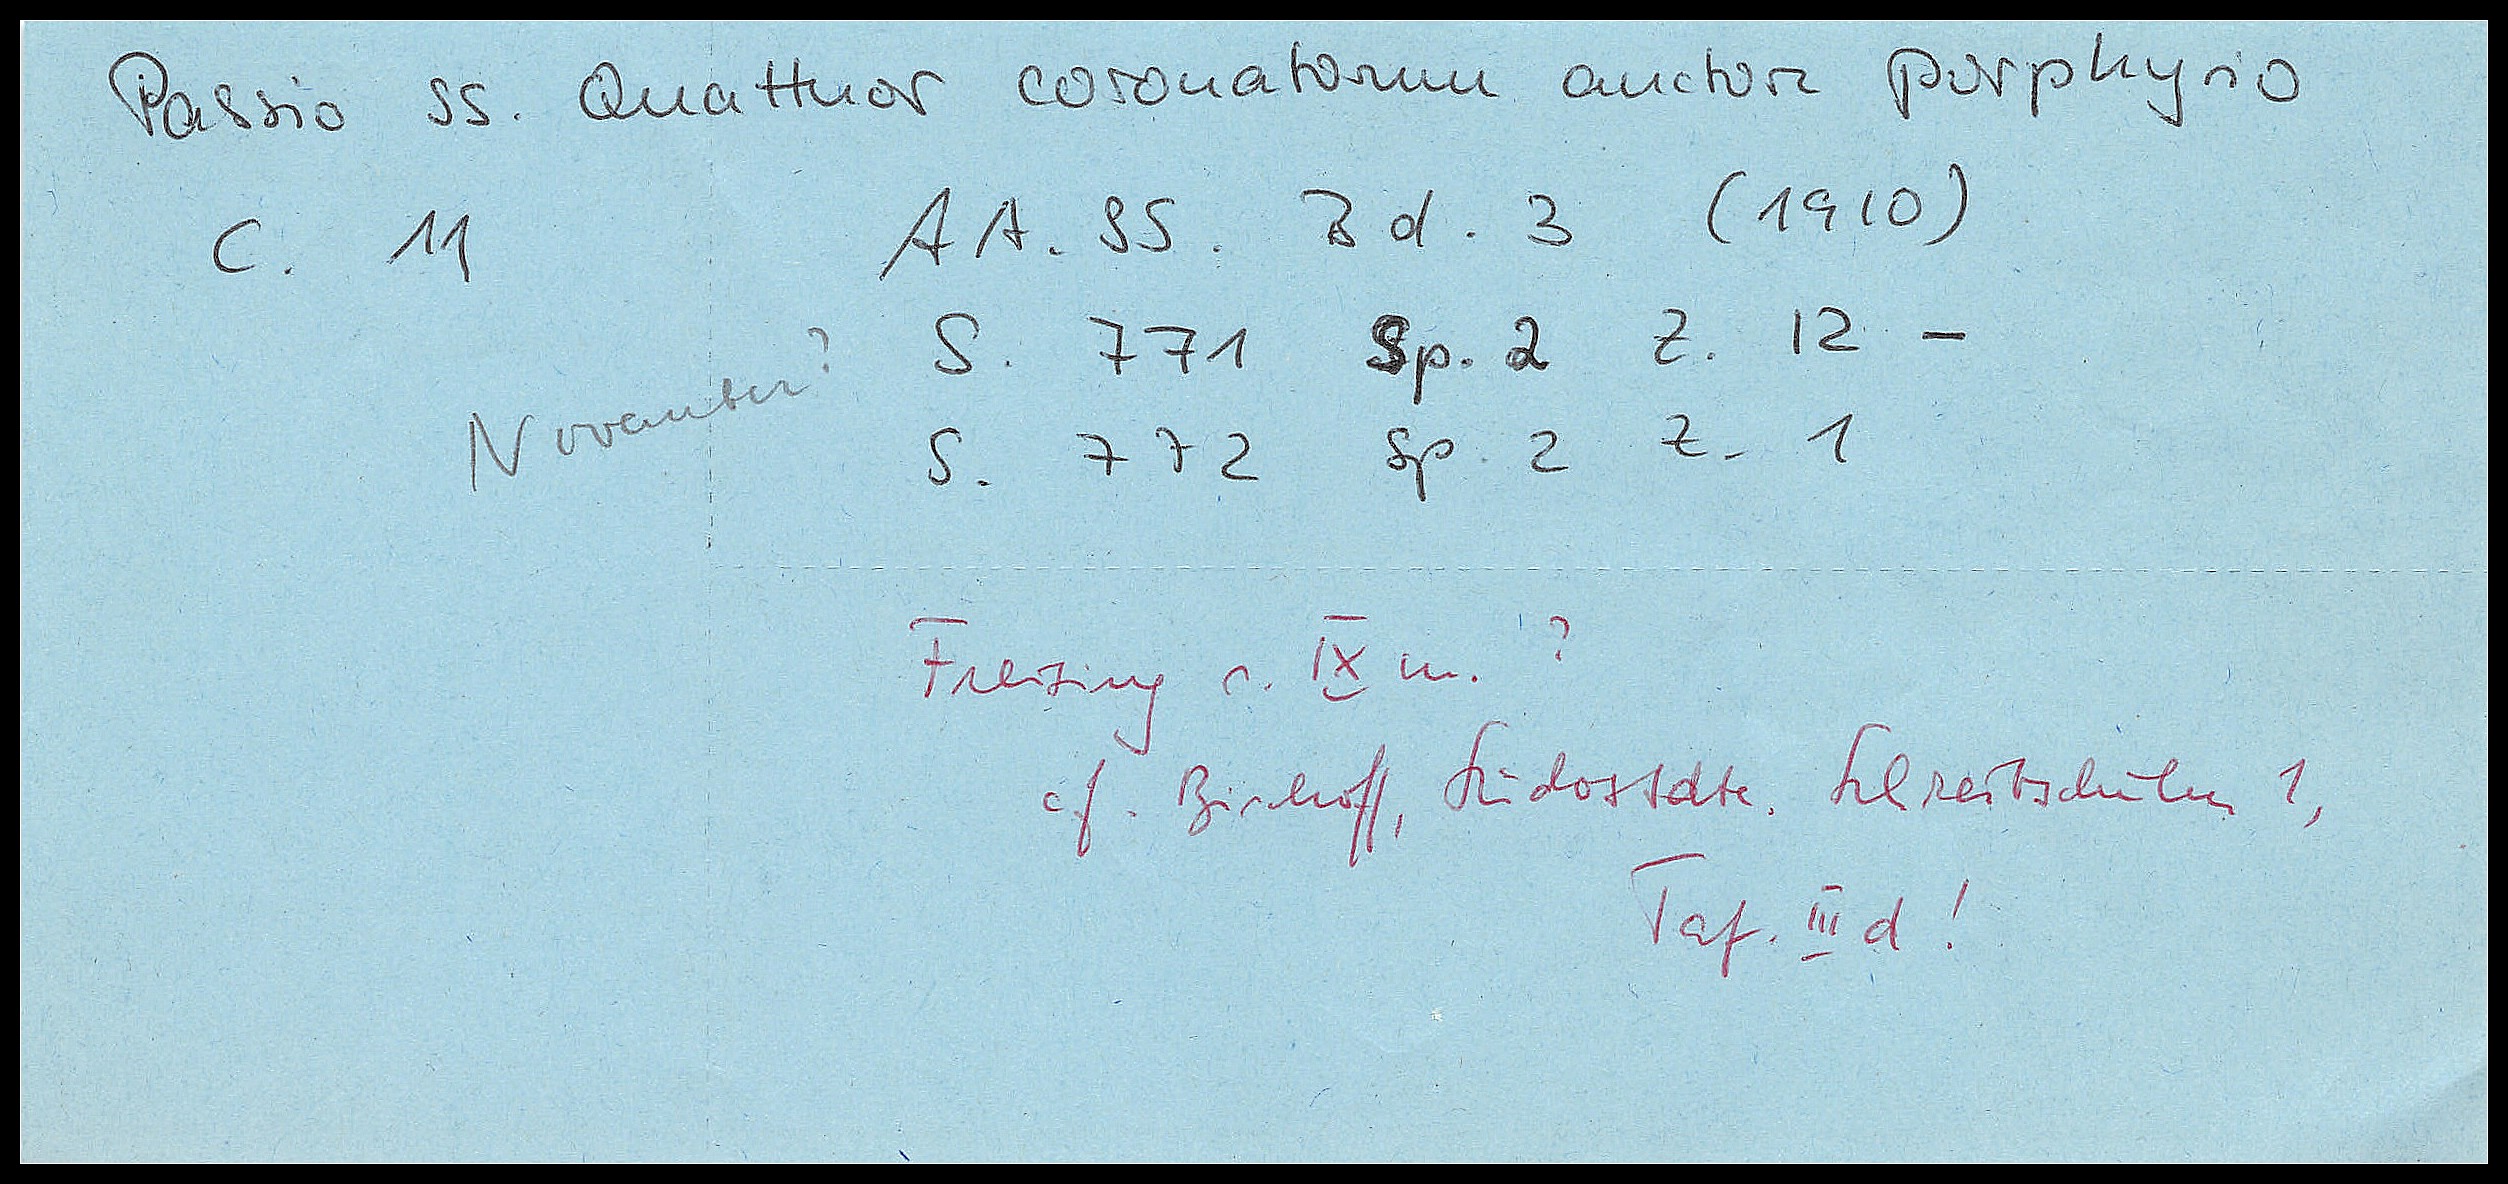 Passio ss. Quattuor coronatorum auctore porphyrio
C. 11 AA. SS. Bd. 3 (1910)
S. 771 Sp. 2 Z. 12 –
November?
S. 772 Sp. 2 Z. 1
Freising s. IX m. ?
cf. Bischoff, Südostdte. Schreibschulen 1,
Taf. III d !